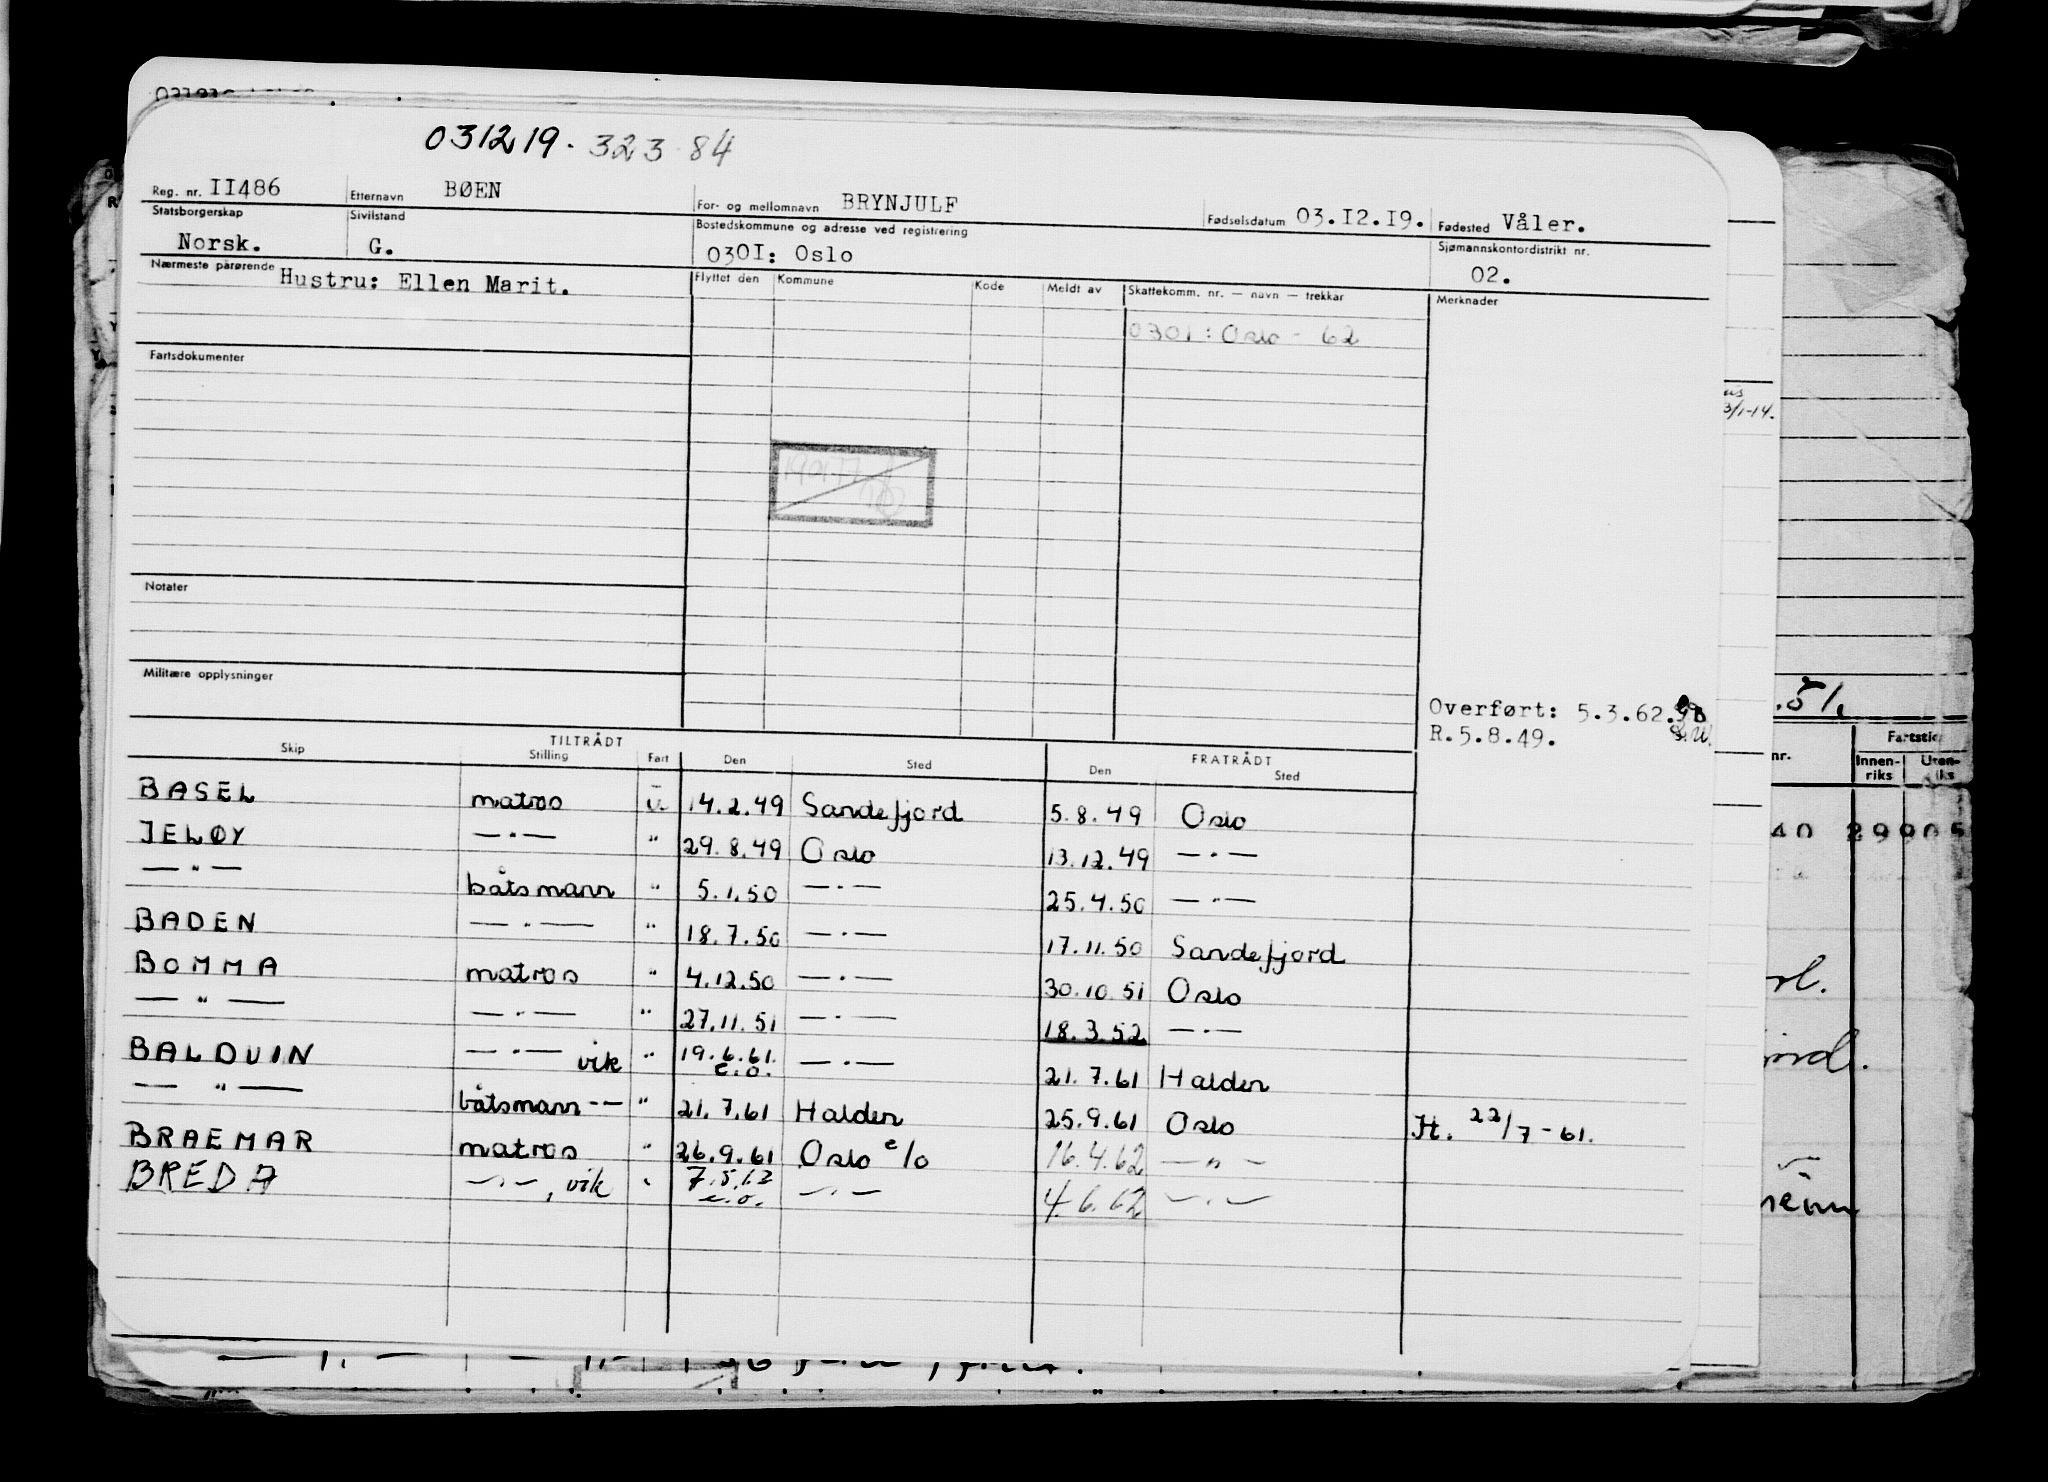 031219. 323 84
Reg. nr. II486 Etternavn BØEN For- og mellomnavn BRYNJULF Fødselsdatum 03.I2.I9. Fødested Våler.
Statsborgerskap Norsk. Sivilstand G. Bostedskommune og adresse ved registrering 030I: Oslo Sjømannskontordistrikt nr. 02.
Nærmeste pårørende Hustru: Ellen Marit. Flyttet den Kommune Kode Meldt av Skattekomm. nr. — navn — trekkar Merknader
0301: Oslo - 62
Fartsdokumenter
Notater
Militære opplysninger
Overført: 5.3.62.
R.5.8.49.
TILTRÅDT FRATRÅDT
Skip Stilling Fart Den Sted Den Sted
BASEL matros u. 14.2.49 Sandefjord 5.8.49 Oslo
JELØY — " — " 29.8.49 Oslo 13.12.49 — " —
— " — båtsmann " 5.1.50 — " — 25.4.50 — " —
BADEN — " — " 18.7.50 — " — 17.11.50 Sandefjord
BOMMA matros " 4.12.50 — " — 30.10.51 Oslo
— " — — " — " 27.11.51 — " — 18.3.52 — " —
BALDUIN — " — vik " 19.6.61. e.o. — " — 21.7.61 Halden
— " — båtsmann -- " 21.7.61 Halden 25.9.61 Oslo H. 22/7-61.
BRAEMAR matros " 26.9.61 Oslo e/o 16.4.62 — " —
BREDA — " —, vik " 7.5.62 e.o. — " — 4.6.62 — " —
.51.
nr. Fartstid
Innen-riks Uten-riks
40 29905